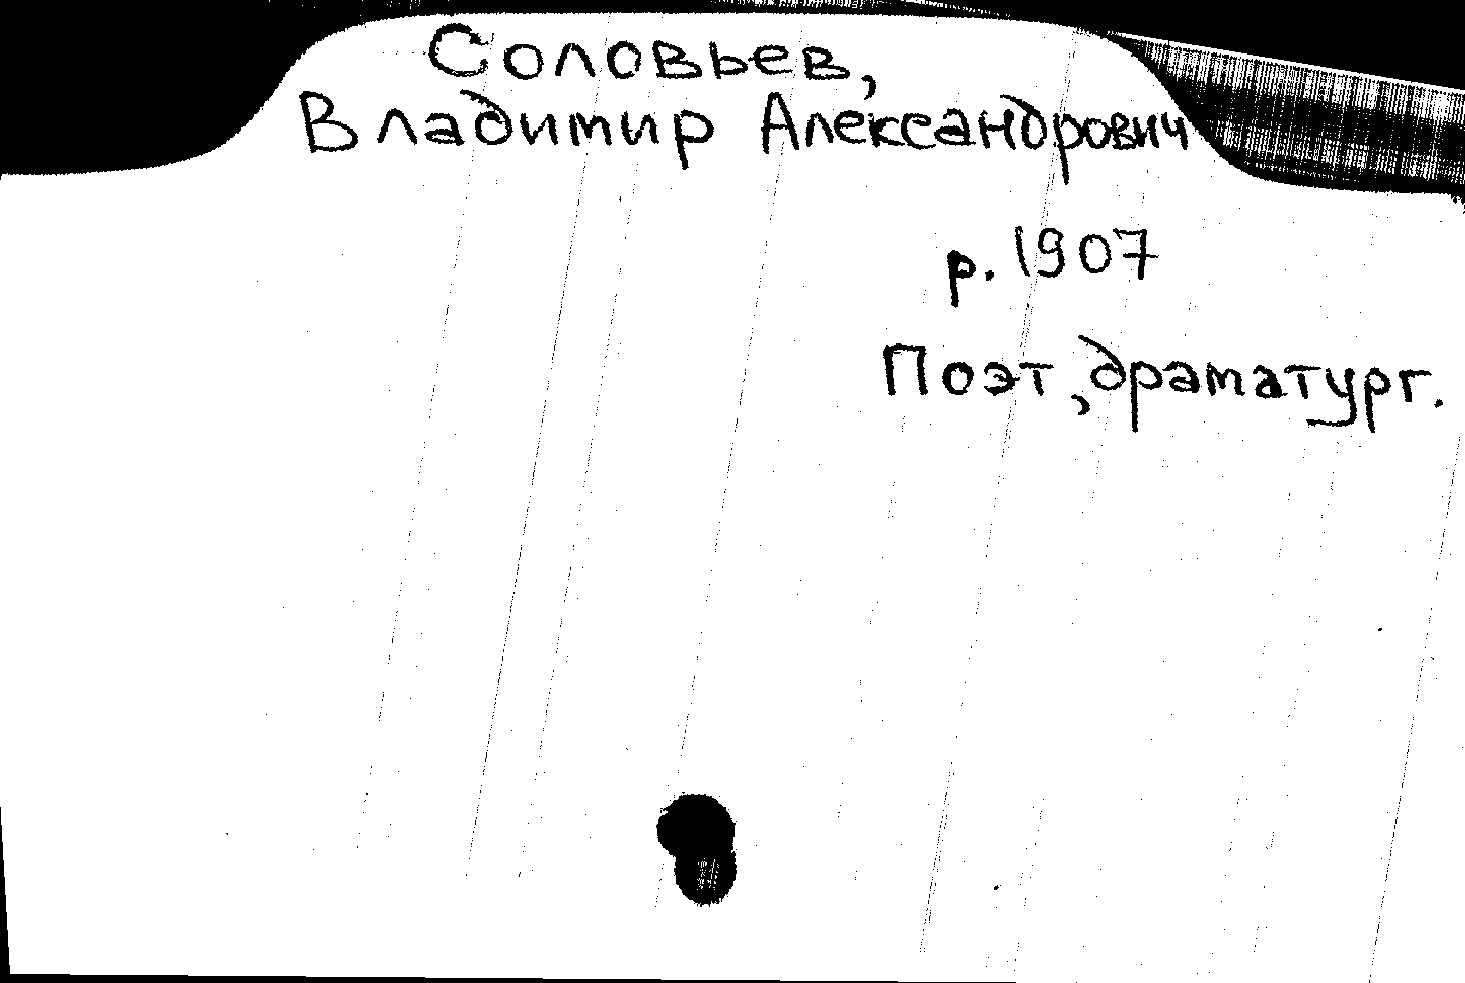 Соловьев,
Владимир Александрович
р. 1907
Поэт, драматург.